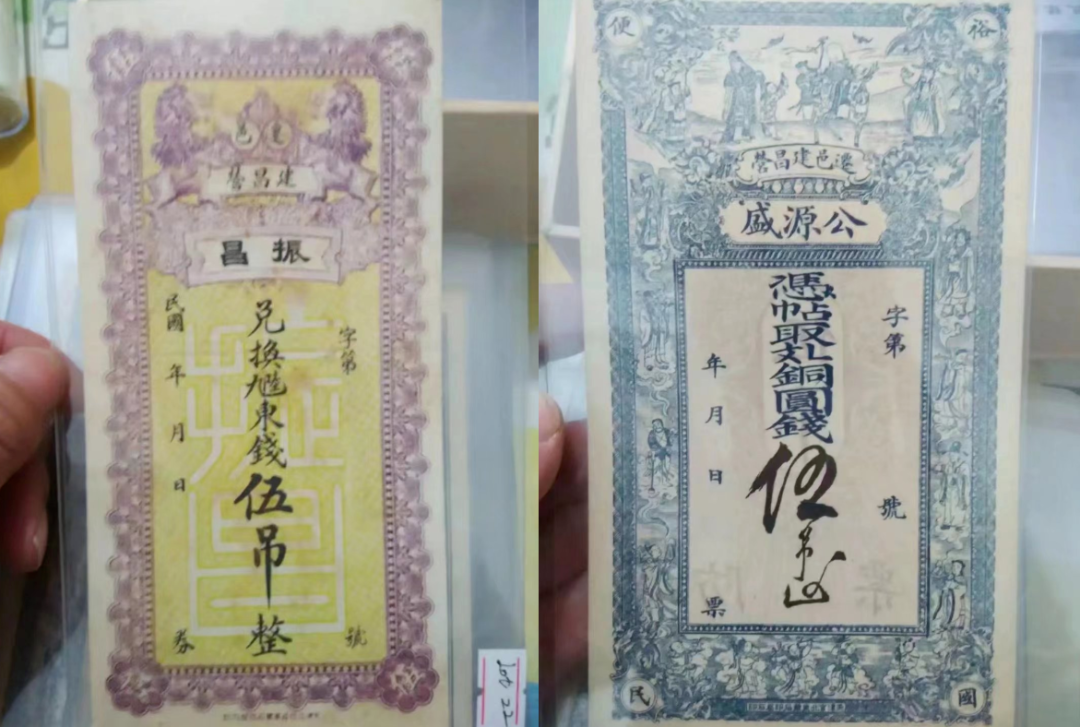 伍
遷邑
建昌營
振昌
字第
號
兌換魓東錢伍吊整
民國年月日
券
裕
便
國
民
遷邑建昌營
公源盛
字第
號
憑帖取
銅圓錢
伍吊
年月日
票